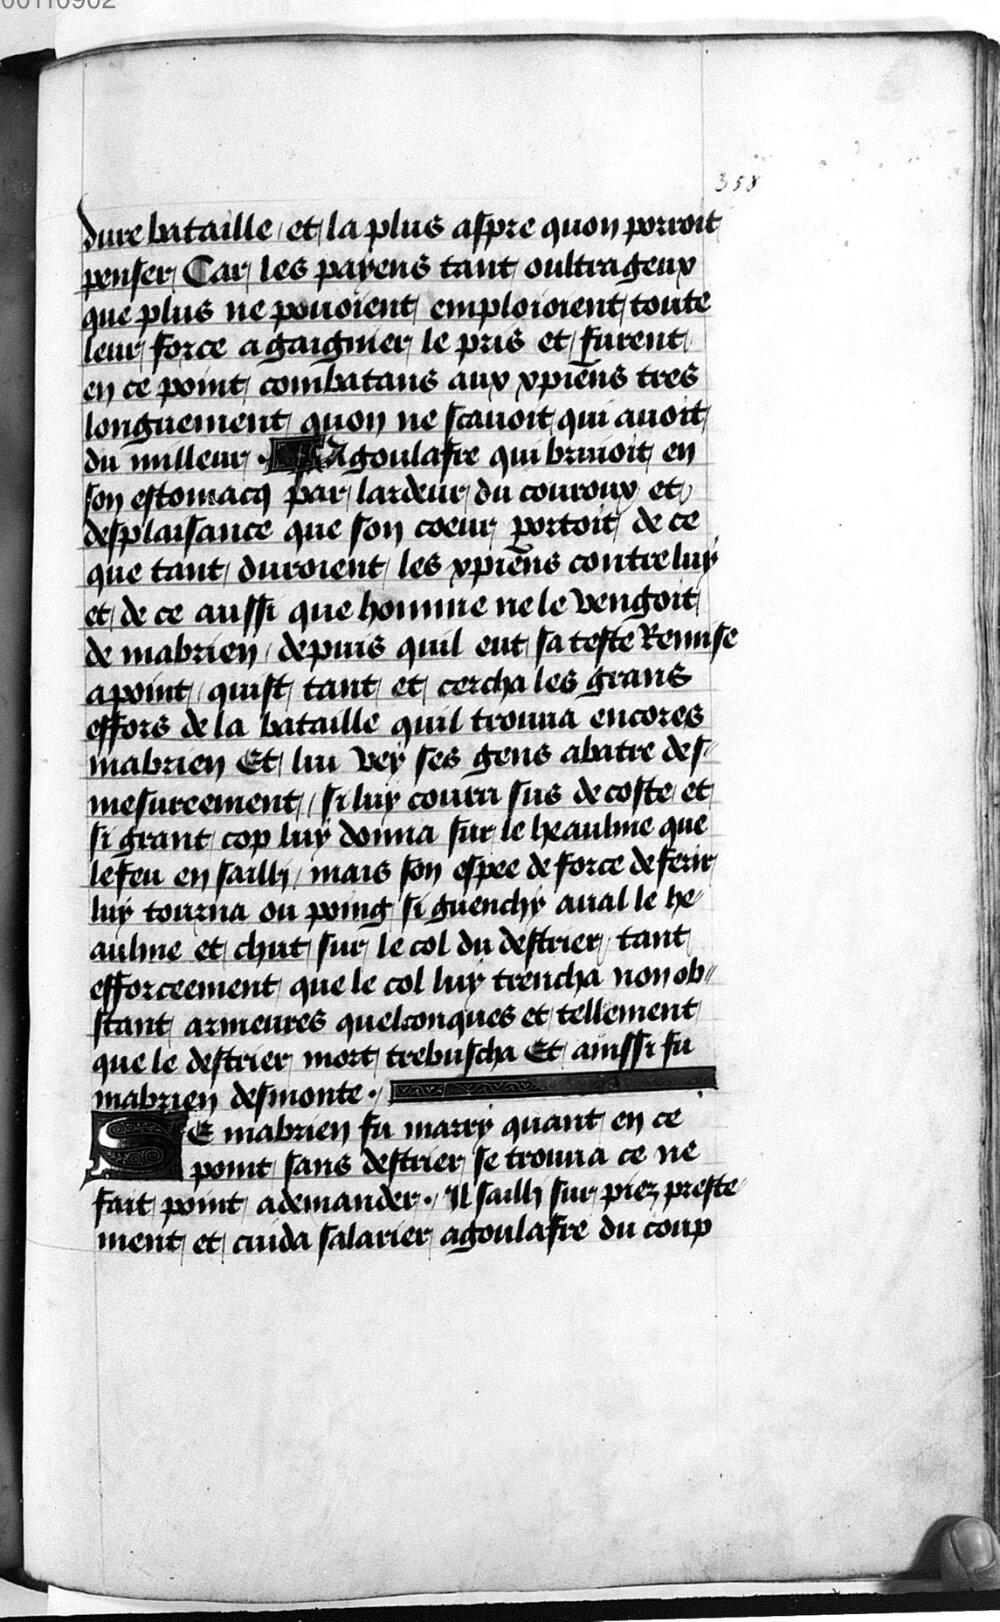 00110902
358
dure bataille / et la plus aspre quon porroit
penser Car les payens tant oultrageux
que plus ne pouoient emploioient toute
leur force a gaignier le pris et furent
en ce point combatans aux xpiēns tres
longuement quon ne scauoit qui auoit
du milleur . Agoulafre qui bruioit en
son estomacq par lardeur du couroux et
desplaisance que son coeur portoit de ce
que tant duroient les xpiēns contre luy
et de ce aussi que homme ne le vengoit
de mabrien / depuis quil eut sa teste Remise
a point / quist tant et cercha les grans
effors de la bataille quil trouua encores
mabrien Et lui vey ses gens abatre des-
mesureement / si luy couru sus de coste et
si grant cop luy donna sur le heaulme que
le feu en sailli / mais son espee de force de ferir
luy tourna ou poing si guenchy aual le he-
aulme et chut sur le col du destrier tant
efforceement que le col luy trencha non ob-
stant armeures quelconques et tellement
que le destrier mort trebuscha Et ainssi fu
mabrien desmonte .
SE mabrien fu marry quant en ce
point sans destrier se trouua ce ne
fait point a demander . Il sailli sur piez preste-
ment et cuida salarier agoulafre du coup